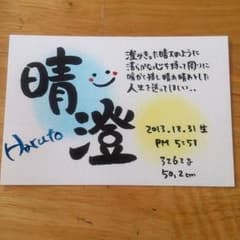 晴澄
Haruto
澄みきった晴天のように
清らかな心を持って周りに
暖かく接し晴れ晴れとした
人生を送ってほしい..
2013.12.31 生
PM 5:51
3767g
50.2cm